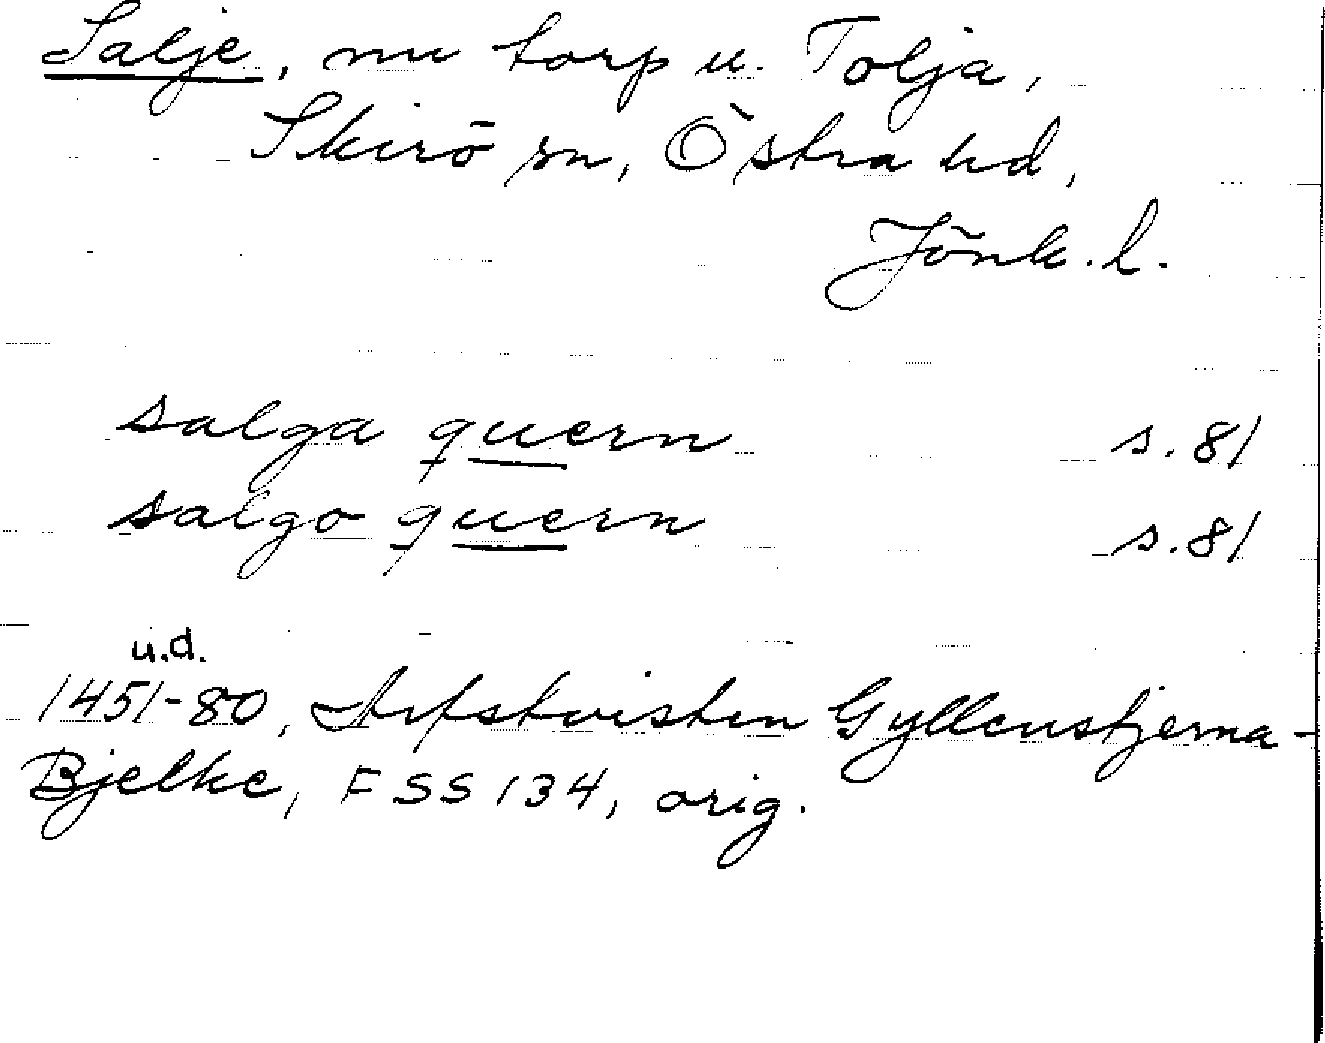 Salje, nu torp u. Tolja,
Skirö sn, Östra hd,
Jönk. l.
salga quern s. 81
salgo quern s. 81
u.d.
1451-80, Arfstvisten Gyllenstjerna-
Bjelke, FSS 134, orig.